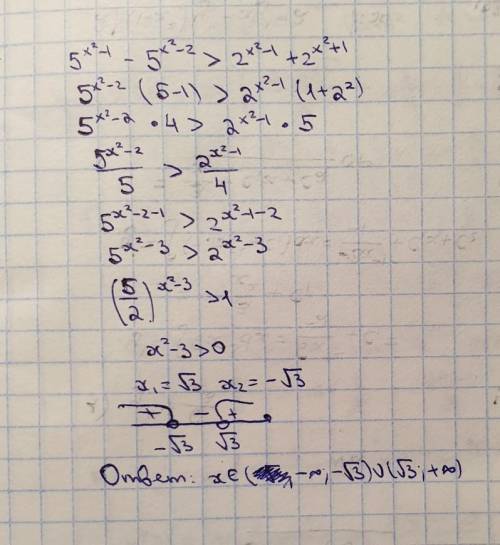 5^{x²-1} - 5^{x²-2} > 2^{x²-1} + 2^{x²+1}
5^{x²-2} (5-1) > 2^{x²-1} (1+2²)
5^{x²-2} · 4 > 2^{x²-1} · 5
5^{x²-2}/5 > 2^{x²-1}/4
5^{x²-2-1} > 2^{x²-1-2}
5^{x²-3} > 2^{x²-3}
(5/2)^{x²-3} > 1
x²-3>0
x₁=√3 x₂=-√3
+ - +
-√3 √3
Ответ: x∈( -∞; -√3)∪(√3; +∞)